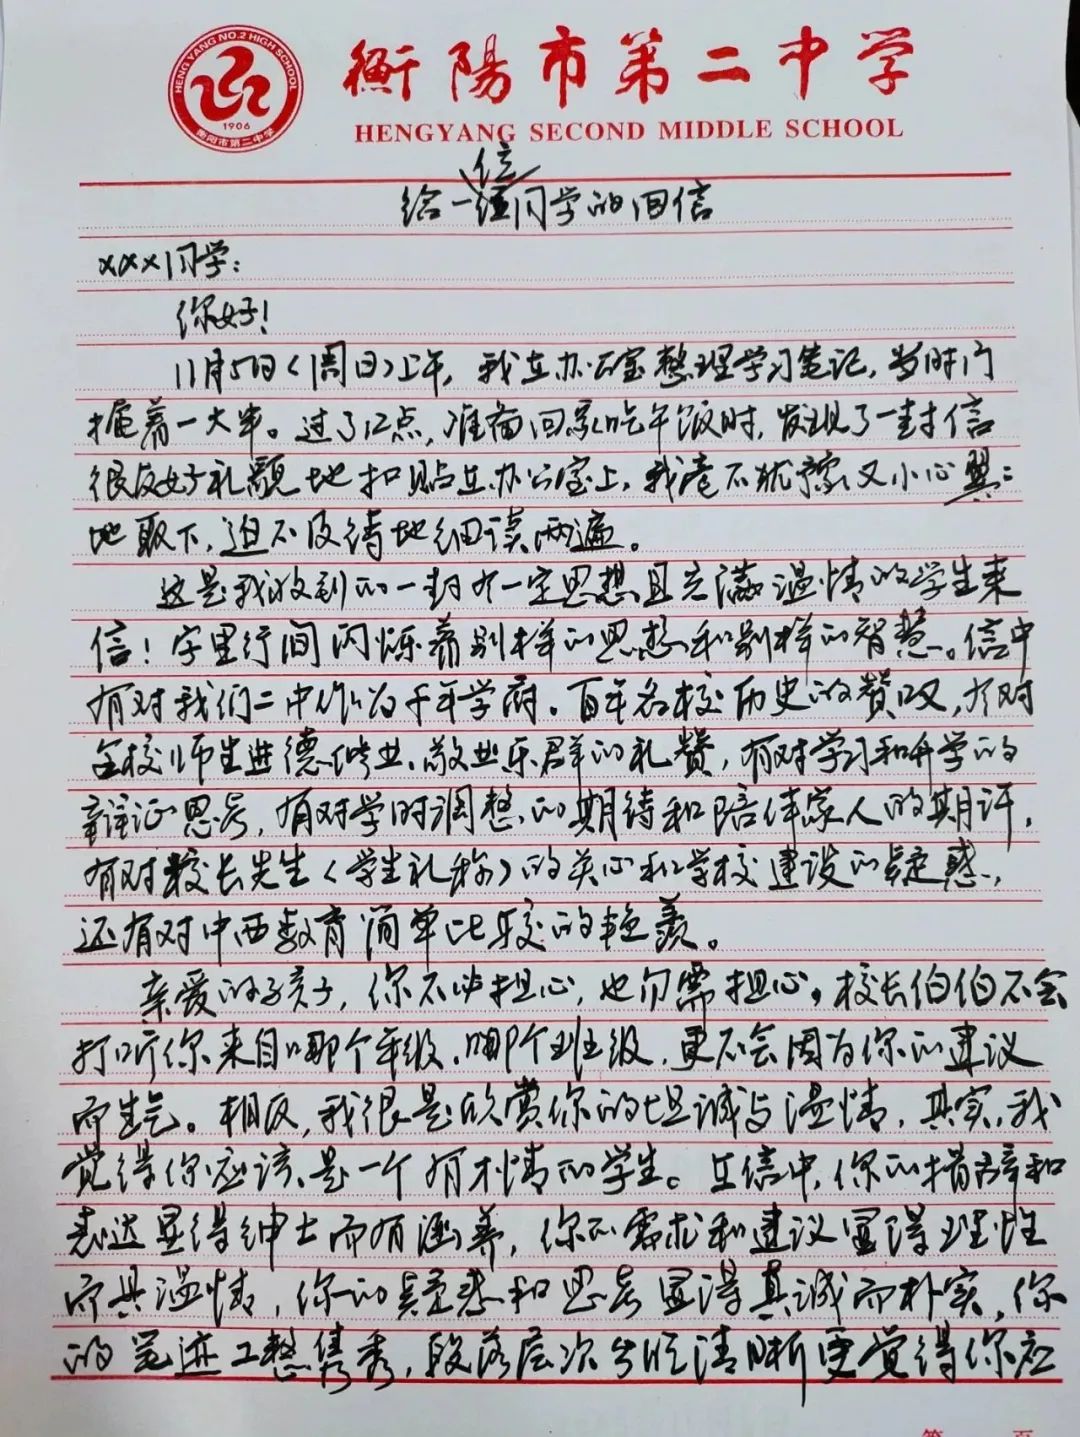 HENG YANG NO.2 HIGH SCHOOL
1906
衡阳市第二中学
衡陽市第二中学
HENGYANG SECOND MIDDLE SCHOOL
位
给一同学的回信
xxx同学：
你好！
11月5日（周日）上午，我在办公室整理学习笔记，当时门
掩着一大半。过了12点，准备回家吃午饭时，发现了一封信
很友好礼貌地扣贴在办公室上，我毫不犹豫又小心翼：
地取下，迫不及待地细读两遍。
这是我收到的一封有一定思想且充满温情的学生来
信！字里行间闪烁着别样的思想和别样的智慧。信中
有对我们二中作为千年学府、百年名校历史的赞叹，有对
全校师生进德修业、敬业乐群的礼赞，有对学习和升学的
辩证思考，有对学时调整的期待和陪伴家人的期许，
有对校长先生（学生礼称）的关心和学校建设的疑惑，
还有对中西教育简单比较的艳羡。
亲爱的孩子，你不必担心，也勿需担心，校长伯伯不会
打听你来自哪个年级、哪个班级，更不会因为你的建议
而生气。相反，我很是欣赏你的坦诚与温情，其实，我
觉得你应该是一个有才情的学生。在信中，你的措辞和
表达显得绅士而有涵养，你的需求和建议显得理性
而具温情，你的疑惑和思考显得真诚而朴实，你
的笔迹工整隽秀，段落层次分明清晰更觉得你应
第 页